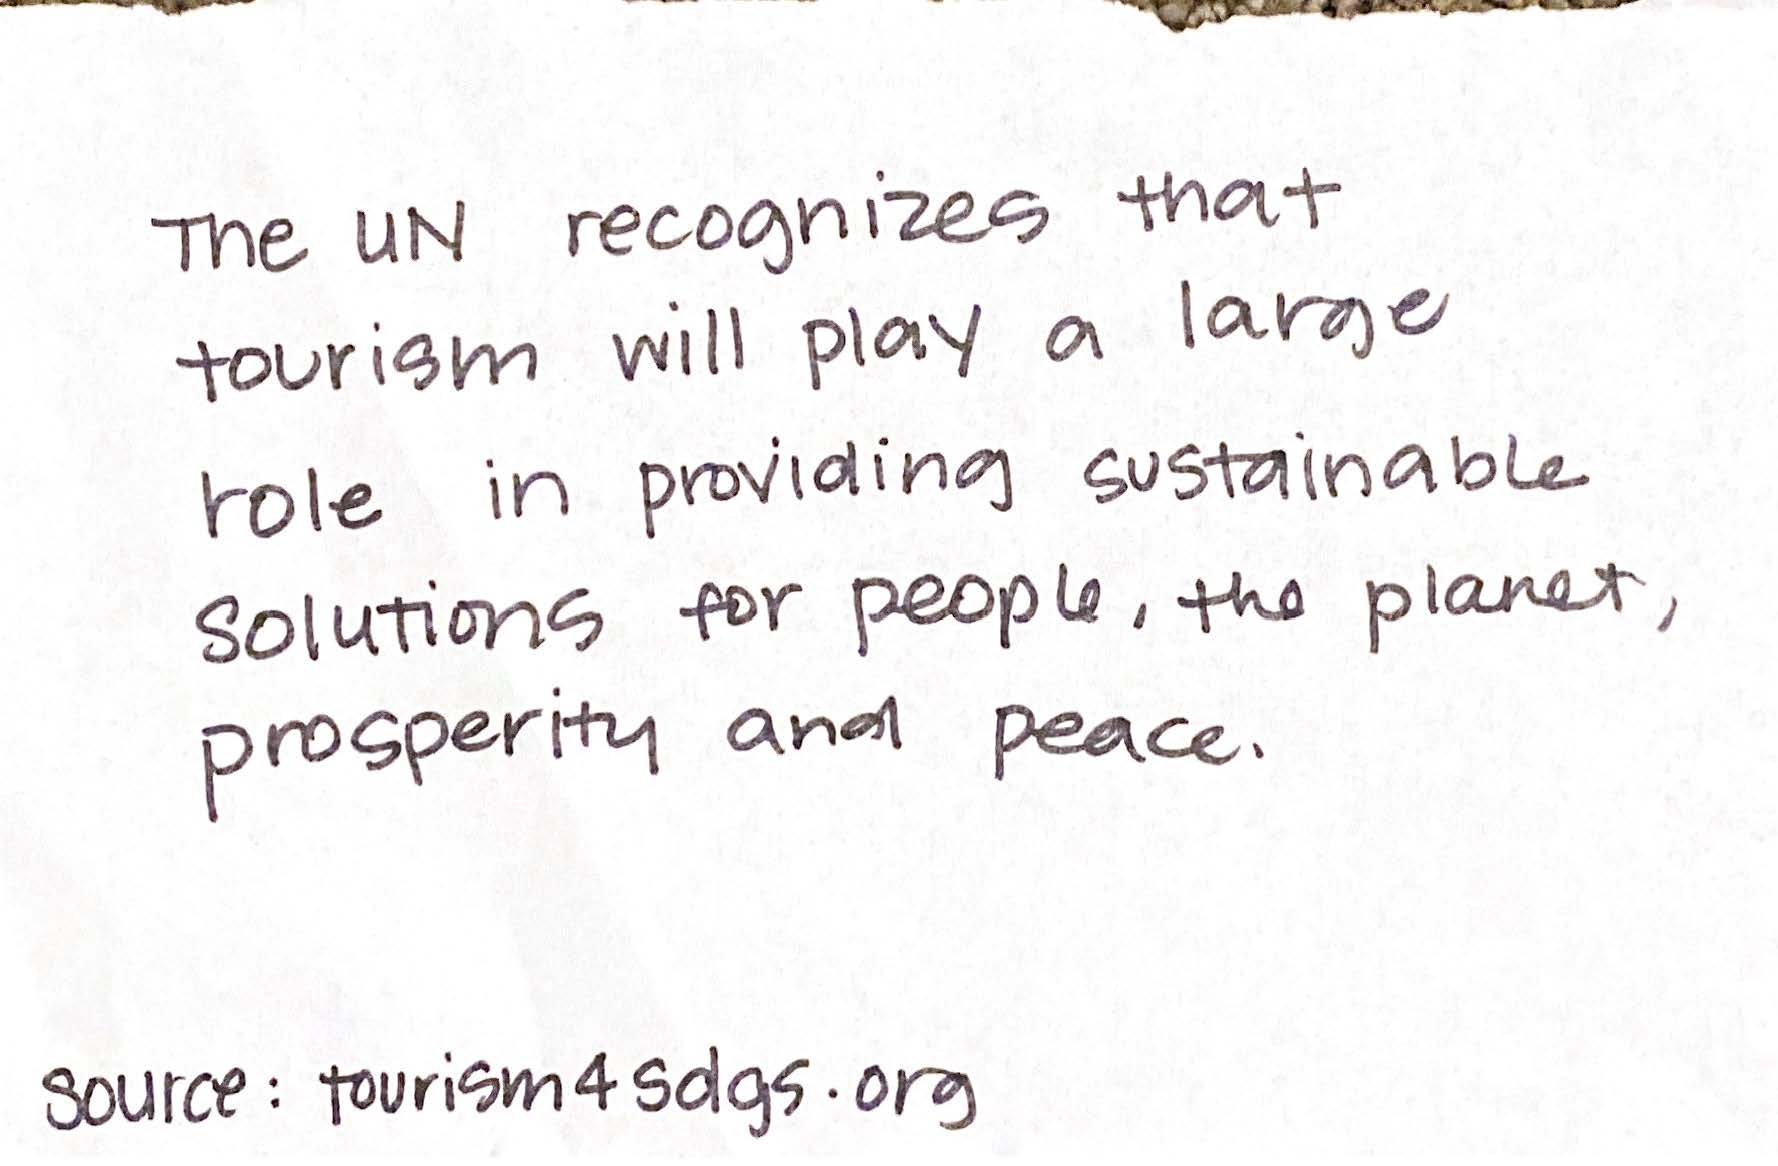 The UN recognizes that
tourism will play a large
role in providing sustainable
solutions for people, the planet,
prosperity and peace.
source: tourism4sdgs.org